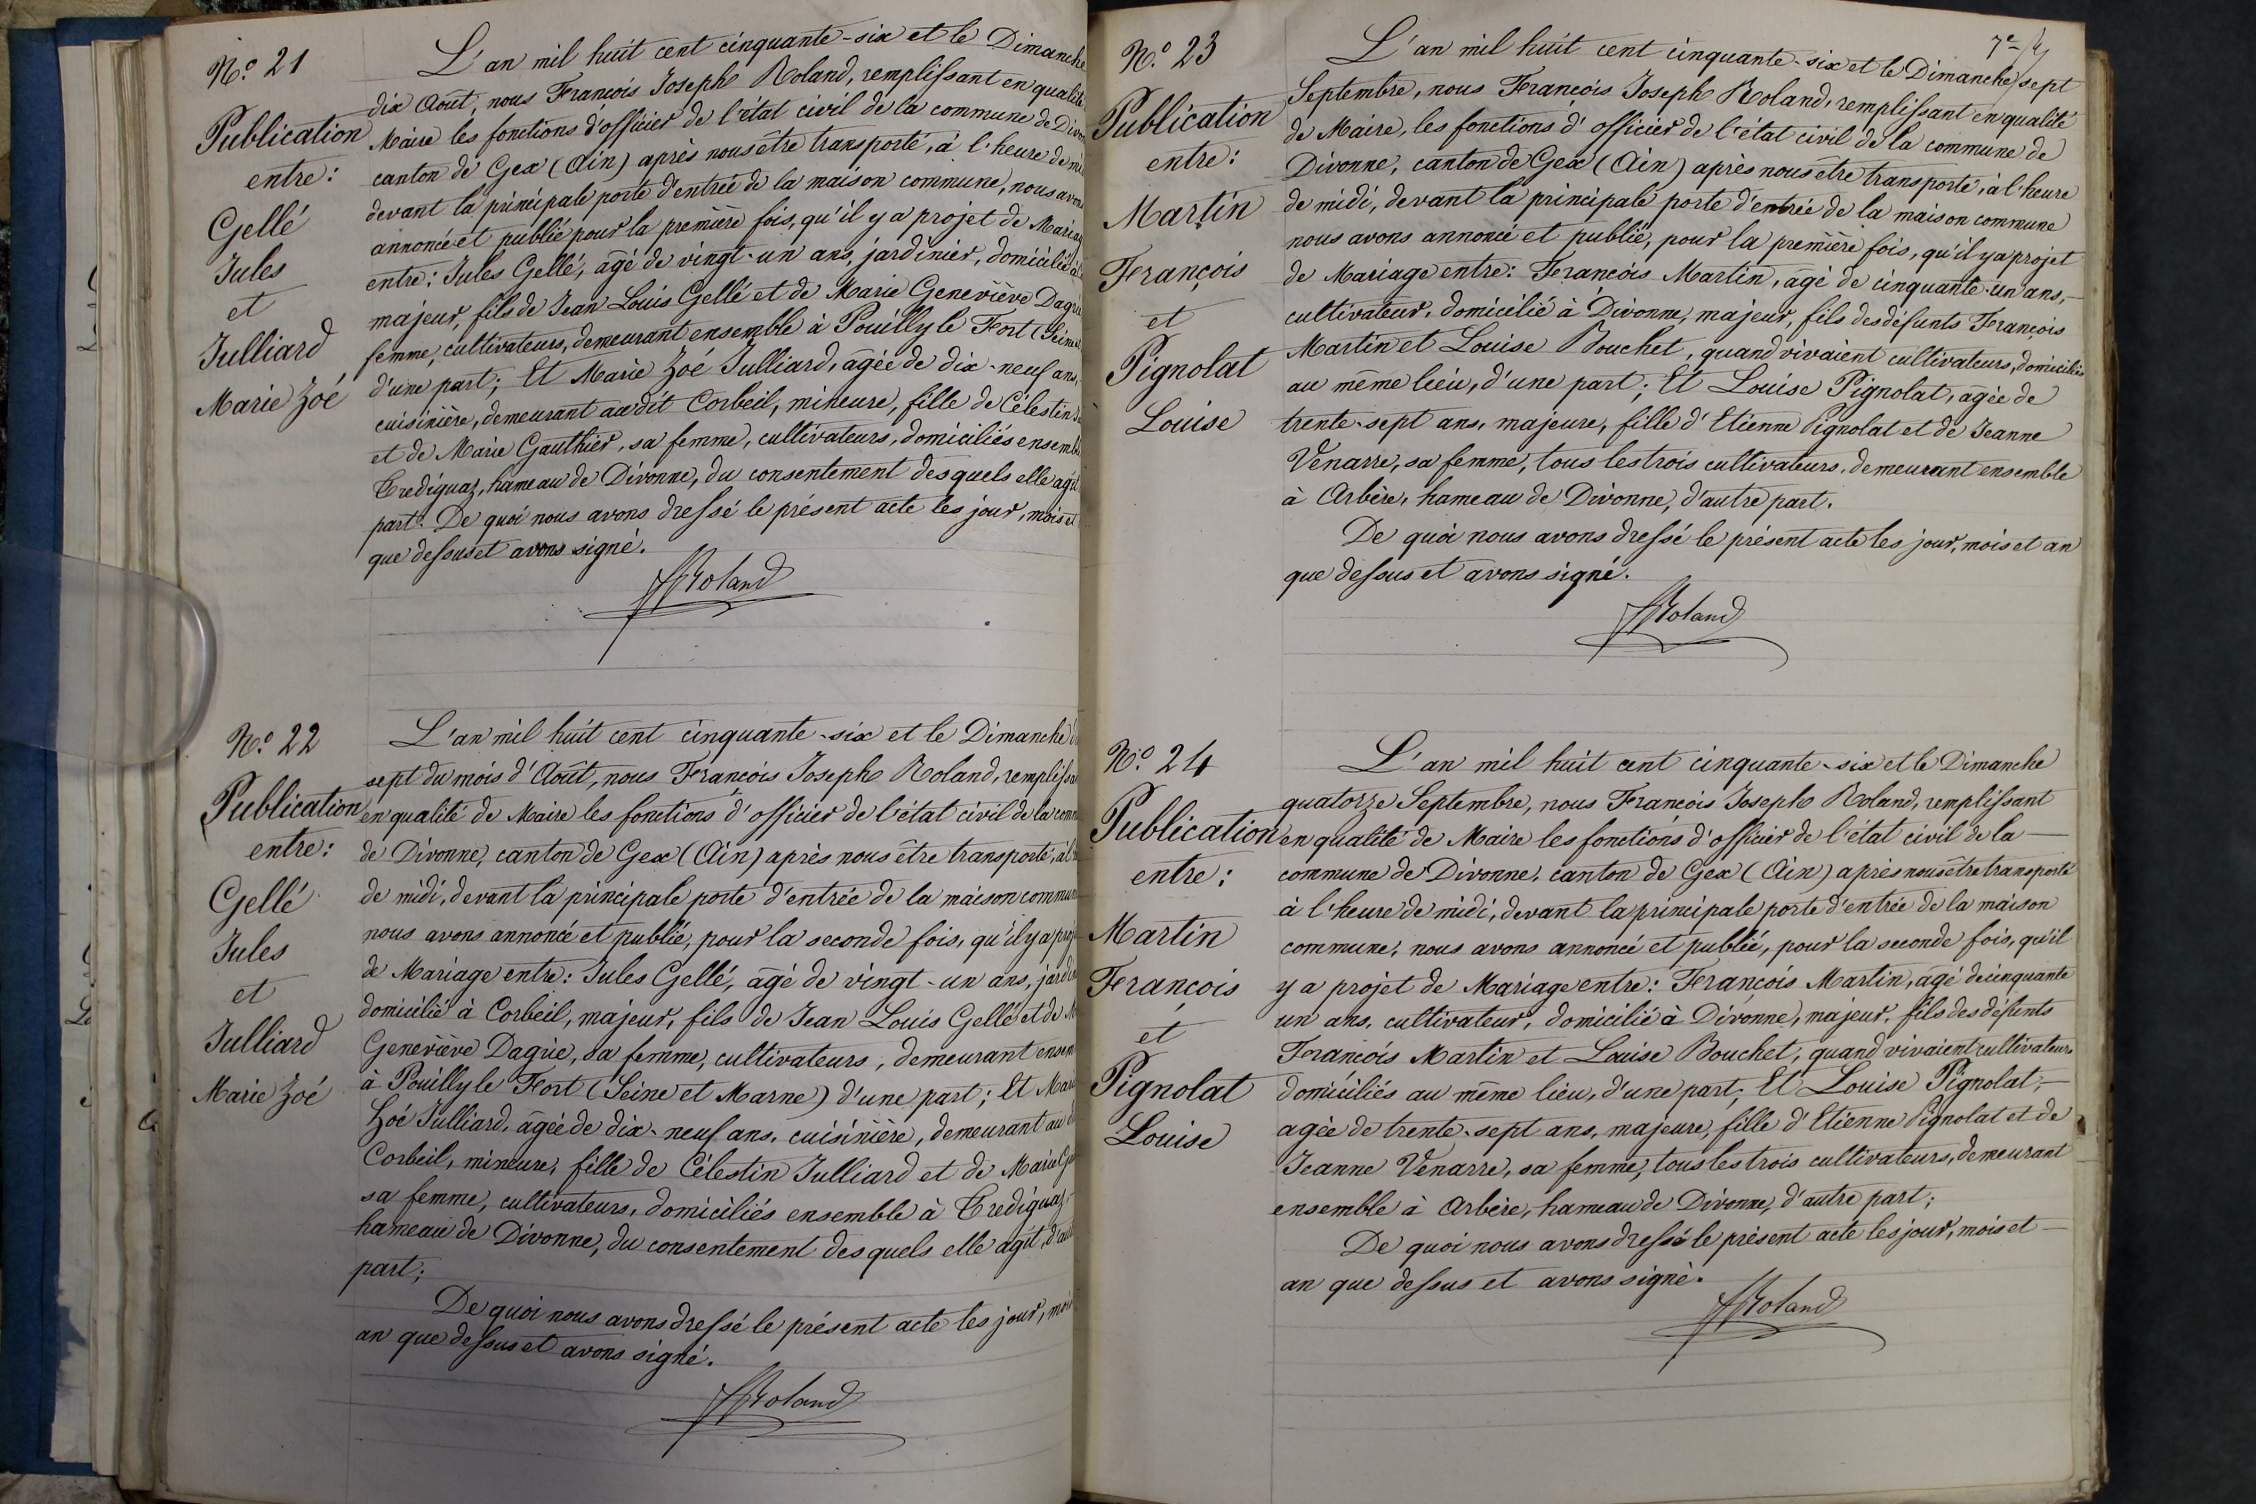 N.º 21
Publication
entre:
Gellé
Jules
et
Julliard
Marie Zoé
L'an mil huit cent cinquante-six et le Dimanche
dix Août, nous François Joseph Roland, remplissant en qualité
Maire les fonctions d'officier de l'état civil de la commune de
canton de Gex (Ain) après nous être transporté, à l'heure de
devant la principale porte d'entrée de la maison commune, nous
annoncé et publié pour la première fois, qu'il y a projet de
entre: Jules Gellé, agé de vingt-un ans, jardinier, domicilié à
majeur, fils de Jean Louis Gellé et de Marie Geneviève
femme, cultivateurs, demeurant ensemble à Pouilly le Fort
d'une part; Et Marie Zoé Julliard, agée de dix-neuf ans,
cuisinière, demeurant au dit Corbeil, mineure, fille de Célestin
et de Marie Gauthier, sa femme, cultivateurs, domiciliés
Crediguaz, hameau de Divonne, du consentement desquels elle agit
part. De quoi nous avons dressé le présent acte les jour, mois et
que dessus et avons signé.
JfRoland
N.º 22
Publication
entre:
Gellé
Jules
et
Julliard
Marie Zoé
L'an mil huit cent cinquante-six et le Dimanche
sept du mois d'Août, nous François Joseph Roland,
en qualité de Maire les fonctions d'officier de l'état civil de la
de Divonne, canton de Gex (Ain) après nous être transporté,
de midi, devant la principale porte d'entrée de la maison
nous avons annoncé et publié, pour la seconde fois, qu'il y a
de Mariage entre: Jules Gellé, agé de vingt-un ans,
domicilié à Corbeil, majeur, fils de Jean Louis Gellé et de
Geneviève Dagrie, sa femme, cultivateurs, demeurant
à Pouilly le Fort (Seine et Marne) d'une part; Et
Zoé Julliard, agée de dix-neuf ans, cuisinière, demeurant au
Corbeil, mineure, fille de Célestin Julliard et de Marie
sa femme, cultivateurs, domiciliés ensemble à Crediguaz,
hameau de Divonne, du consentement desquels elle agit,
part;
De quoi nous avons dressé le présent acte les jour,
an que dessus et avons signé.
JfRoland
7e
N.º 23
Publication
entre:
Martin
François
et
Pignolat
Louise
L'an mil huit cent cinquante-six et le Dimanche sept
Septembre, nous François Joseph Roland, remplissant en qualité
de Maire, les fonctions d'officier de l'état civil de la commune de
Divonne, canton de Gex (Ain) après nous être transporté, à l'heure
de midi, devant la principale porte d'entrée de la maison commune
nous avons annoncé et publié, pour la première fois, qu'il y a projet
de Mariage entre: François Martin, agé de cinquante-un ans,
cultivateur, domicilié à Divonne, majeur, fils des défunts François
Martin et Louise Bouchet, quand vivaient cultivateurs, domiciliés
au même lieu, d'une part; Et Louise Pignolat, agée de
trente-sept ans, majeure, fille d'Etienne Pignolat et de Jeanne
Venarre, sa femme, tous les trois cultivateurs, demeurant ensemble
à Arbère, hameau de Divonne, d'autre part.
De quoi nous avons dressé le présent acte les jour, mois et an
que dessus et avons signé.
JfRoland
N.º 24
Publication
entre:
Martin
François
et
Pignolat
Louise
L'an mil huit cent cinquante-six et le Dimanche
quatorze Septembre, nous François Joseph Roland, remplissant
en qualité de Maire les fonctions d'officier de l'état civil de la
commune de Divonne, canton de Gex (Ain) après nous être transporté
à l'heure de midi, devant la principale porte d'entrée de la maison
commune, nous avons annoncé et publié, pour la seconde fois, qu'il
y a projet de Mariage entre: François Martin, agé de cinquante
un ans, cultivateur, domicilié à Divonne, majeur, fils des défunts
François Martin et Louise Bouchet, quand vivaient cultivateurs
domiciliés au même lieu, d'une part; Et Louise Pignolat,
agée de trente-sept ans, majeure, fille d'Etienne Pignolat et de
Jeanne Venarre, sa femme, tous les trois cultivateurs, demeurant
ensemble à Arbère, hameau de Divonne, d'autre part;
De quoi nous avons dressé le présent acte les jour, mois et
an que dessus et avons signé.
JfRoland